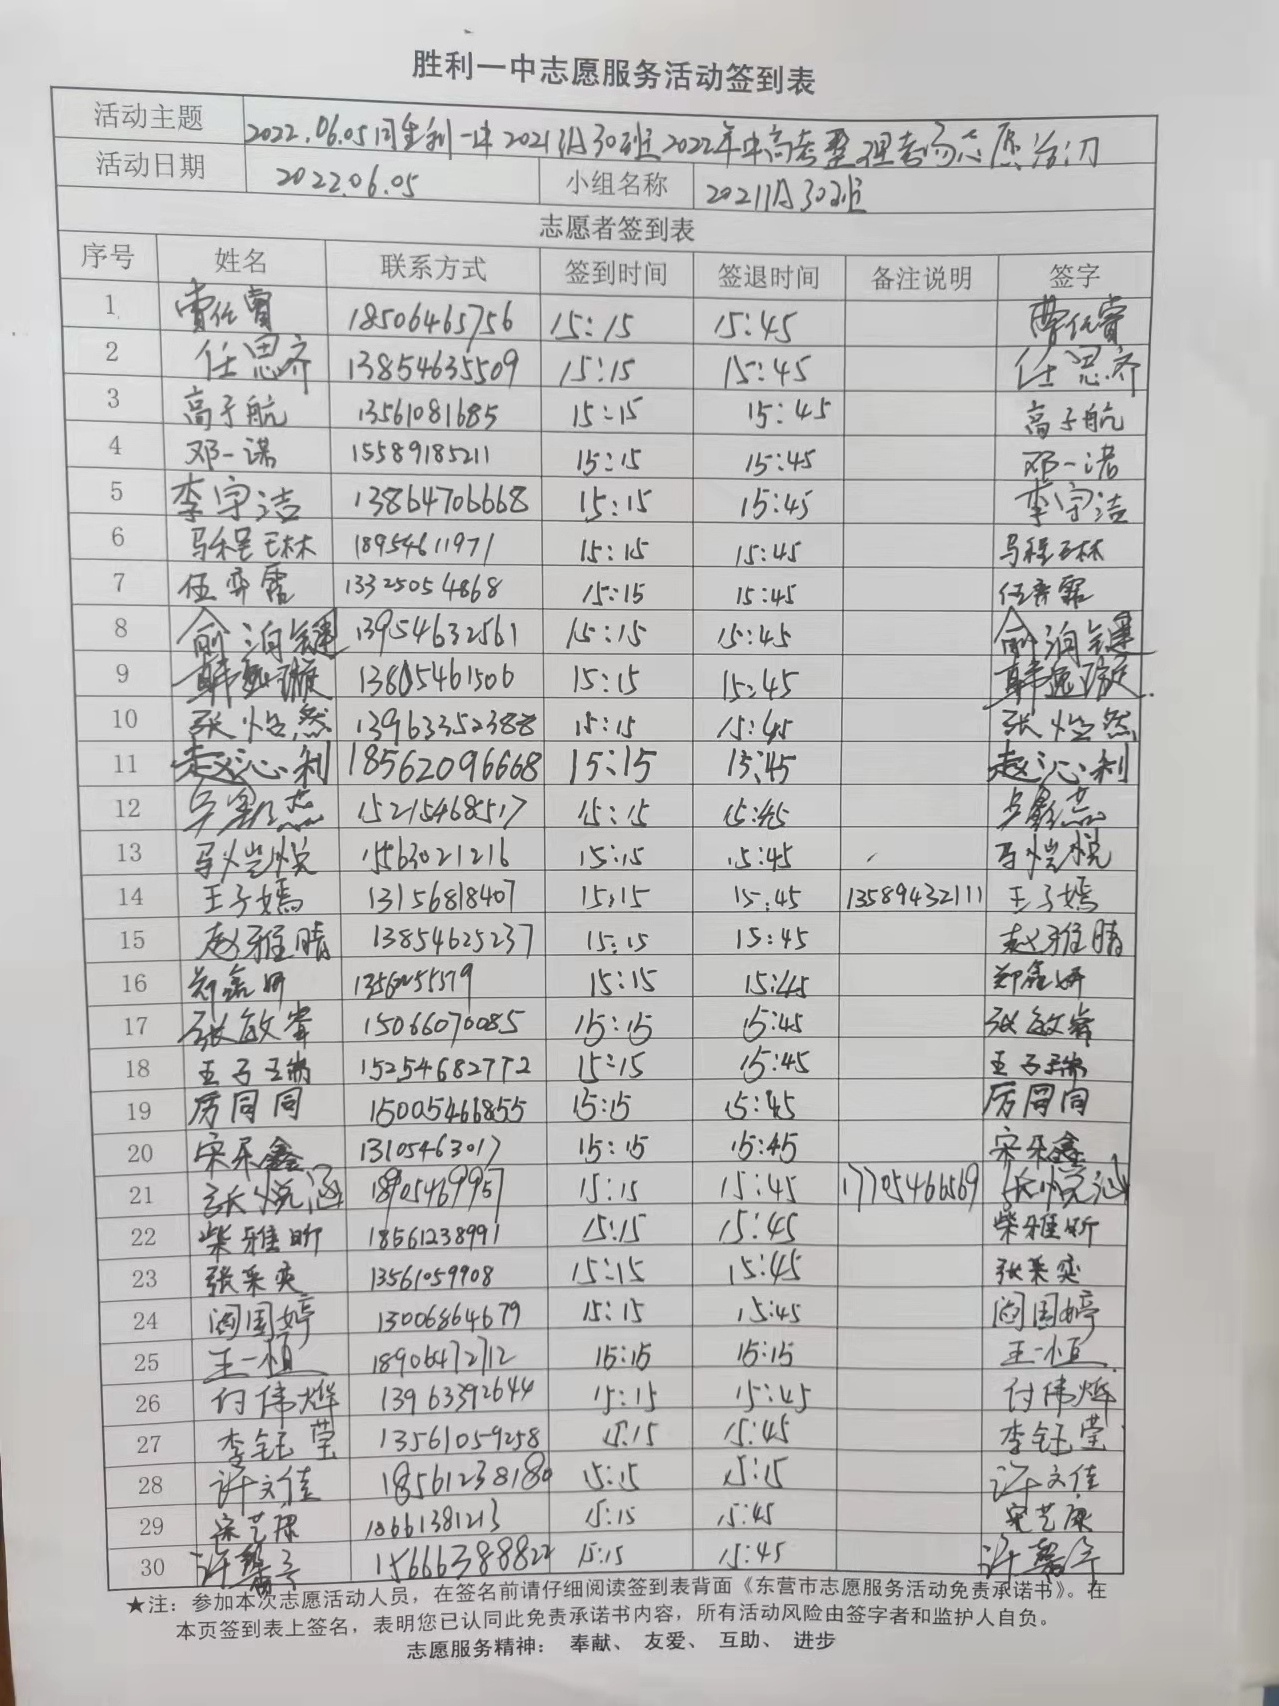 胜利一中志愿服务活动签到表
活动主题 2022.06.05 利一中2021级30班2022年中高考整理考场志愿活动
活动日期 2022.06.05 小组名称 2021级30班
志愿者签到表
序号 姓名 联系方式 签到时间 签退时间 备注说明 签字
1 18506465756 15:15 15:45
2 任思齐 13854635509 15:15 15:45 任思齐
3 高子航 13561081685 15:15 15:45 高子航
4 邓一诺 15589185211 15:15 15:45 邓一诺
5 李宇洁 13864706668 15:15 15:45 李宇洁
6 马程琳 18954611971 15:15 15:45 马程琳
7 伍弈霏 13325054868 15:15 15:45 伍弈霏
8 俞泊键 13954632561 15:15 15:45 俞泊键
9 韩逸璇 13805461506 15:15 15:45 韩逸璇
10 张焰然 13963352388 15:15 15:45 张焰然
11 赵沁利 18562096668 15:15 15:45 赵沁利
12 15215468517 15:15 15:45
13 马恺悦 15563021216 15:15 15:45 马恺悦
14 王子嫣 13156818407 15:15 15:45 13589432111 王子嫣
15 赵雅晴 13854625237 15:15 15:45 赵雅晴
16 郑鑫妍 15:15 15:45 郑鑫妍
17 张敏睿 15066070085 15:15 15:45 张敏睿
18 王子瑞 15254682772 15:15 15:45 王子瑞
19 厉同同 15005466855 15:15 15:45 厉同同
20 宋乐鑫 13105463017 15:15 15:45 宋乐鑫
21 张悦涵 18905469957 15:15 15:45 17705466569 张悦涵
22 柴雅昕 18561238991 15:15 15:45 柴雅昕
23 张采奕 13561059908 15:15 15:45 张采奕
24 阎国婷 13006864679 15:15 15:45 阎国婷
25 王一恒 18906472712 15:15 15:15 王一恒
26 付伟烨 13963392644 15:15 15:45 付伟烨
27 李钰莹 13561059258 15:15 15:45 李钰莹
28 许文佳 18561238180 15:15 15:15 许文佳
29 宋艺康 18661381213 15:15 15:45 宋艺康
30 许馨予 15666388822 15:15 15:45 许馨予
★注：参加本次志愿活动人员，在签名前请仔细阅读签到表背面《东营市志愿服务活动免责承诺书》。在
本页签到表上签名，表明您已认同此免责承诺书内容，所有活动风险由签字者和监护人自负。
志愿服务精神： 奉献、 友爱、 互助、 进步